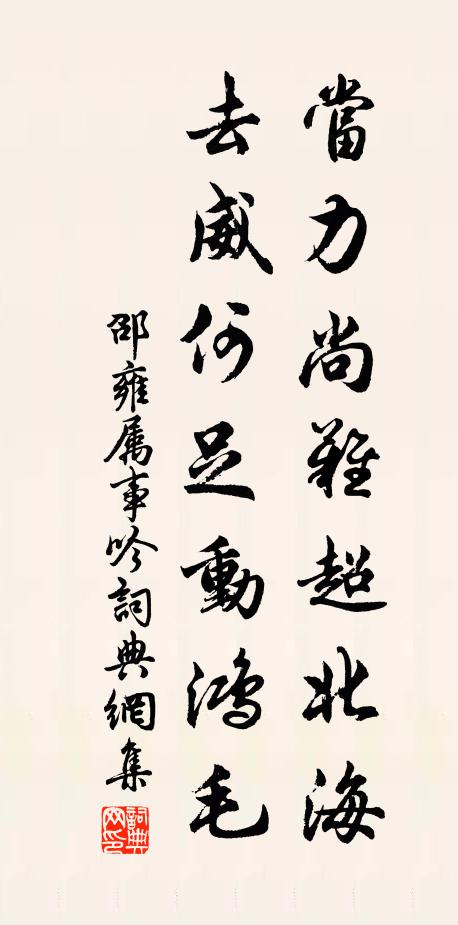 當力尚難超北海
去威何足動鴻毛
邵雍属事吟詞典網集
詞典網印